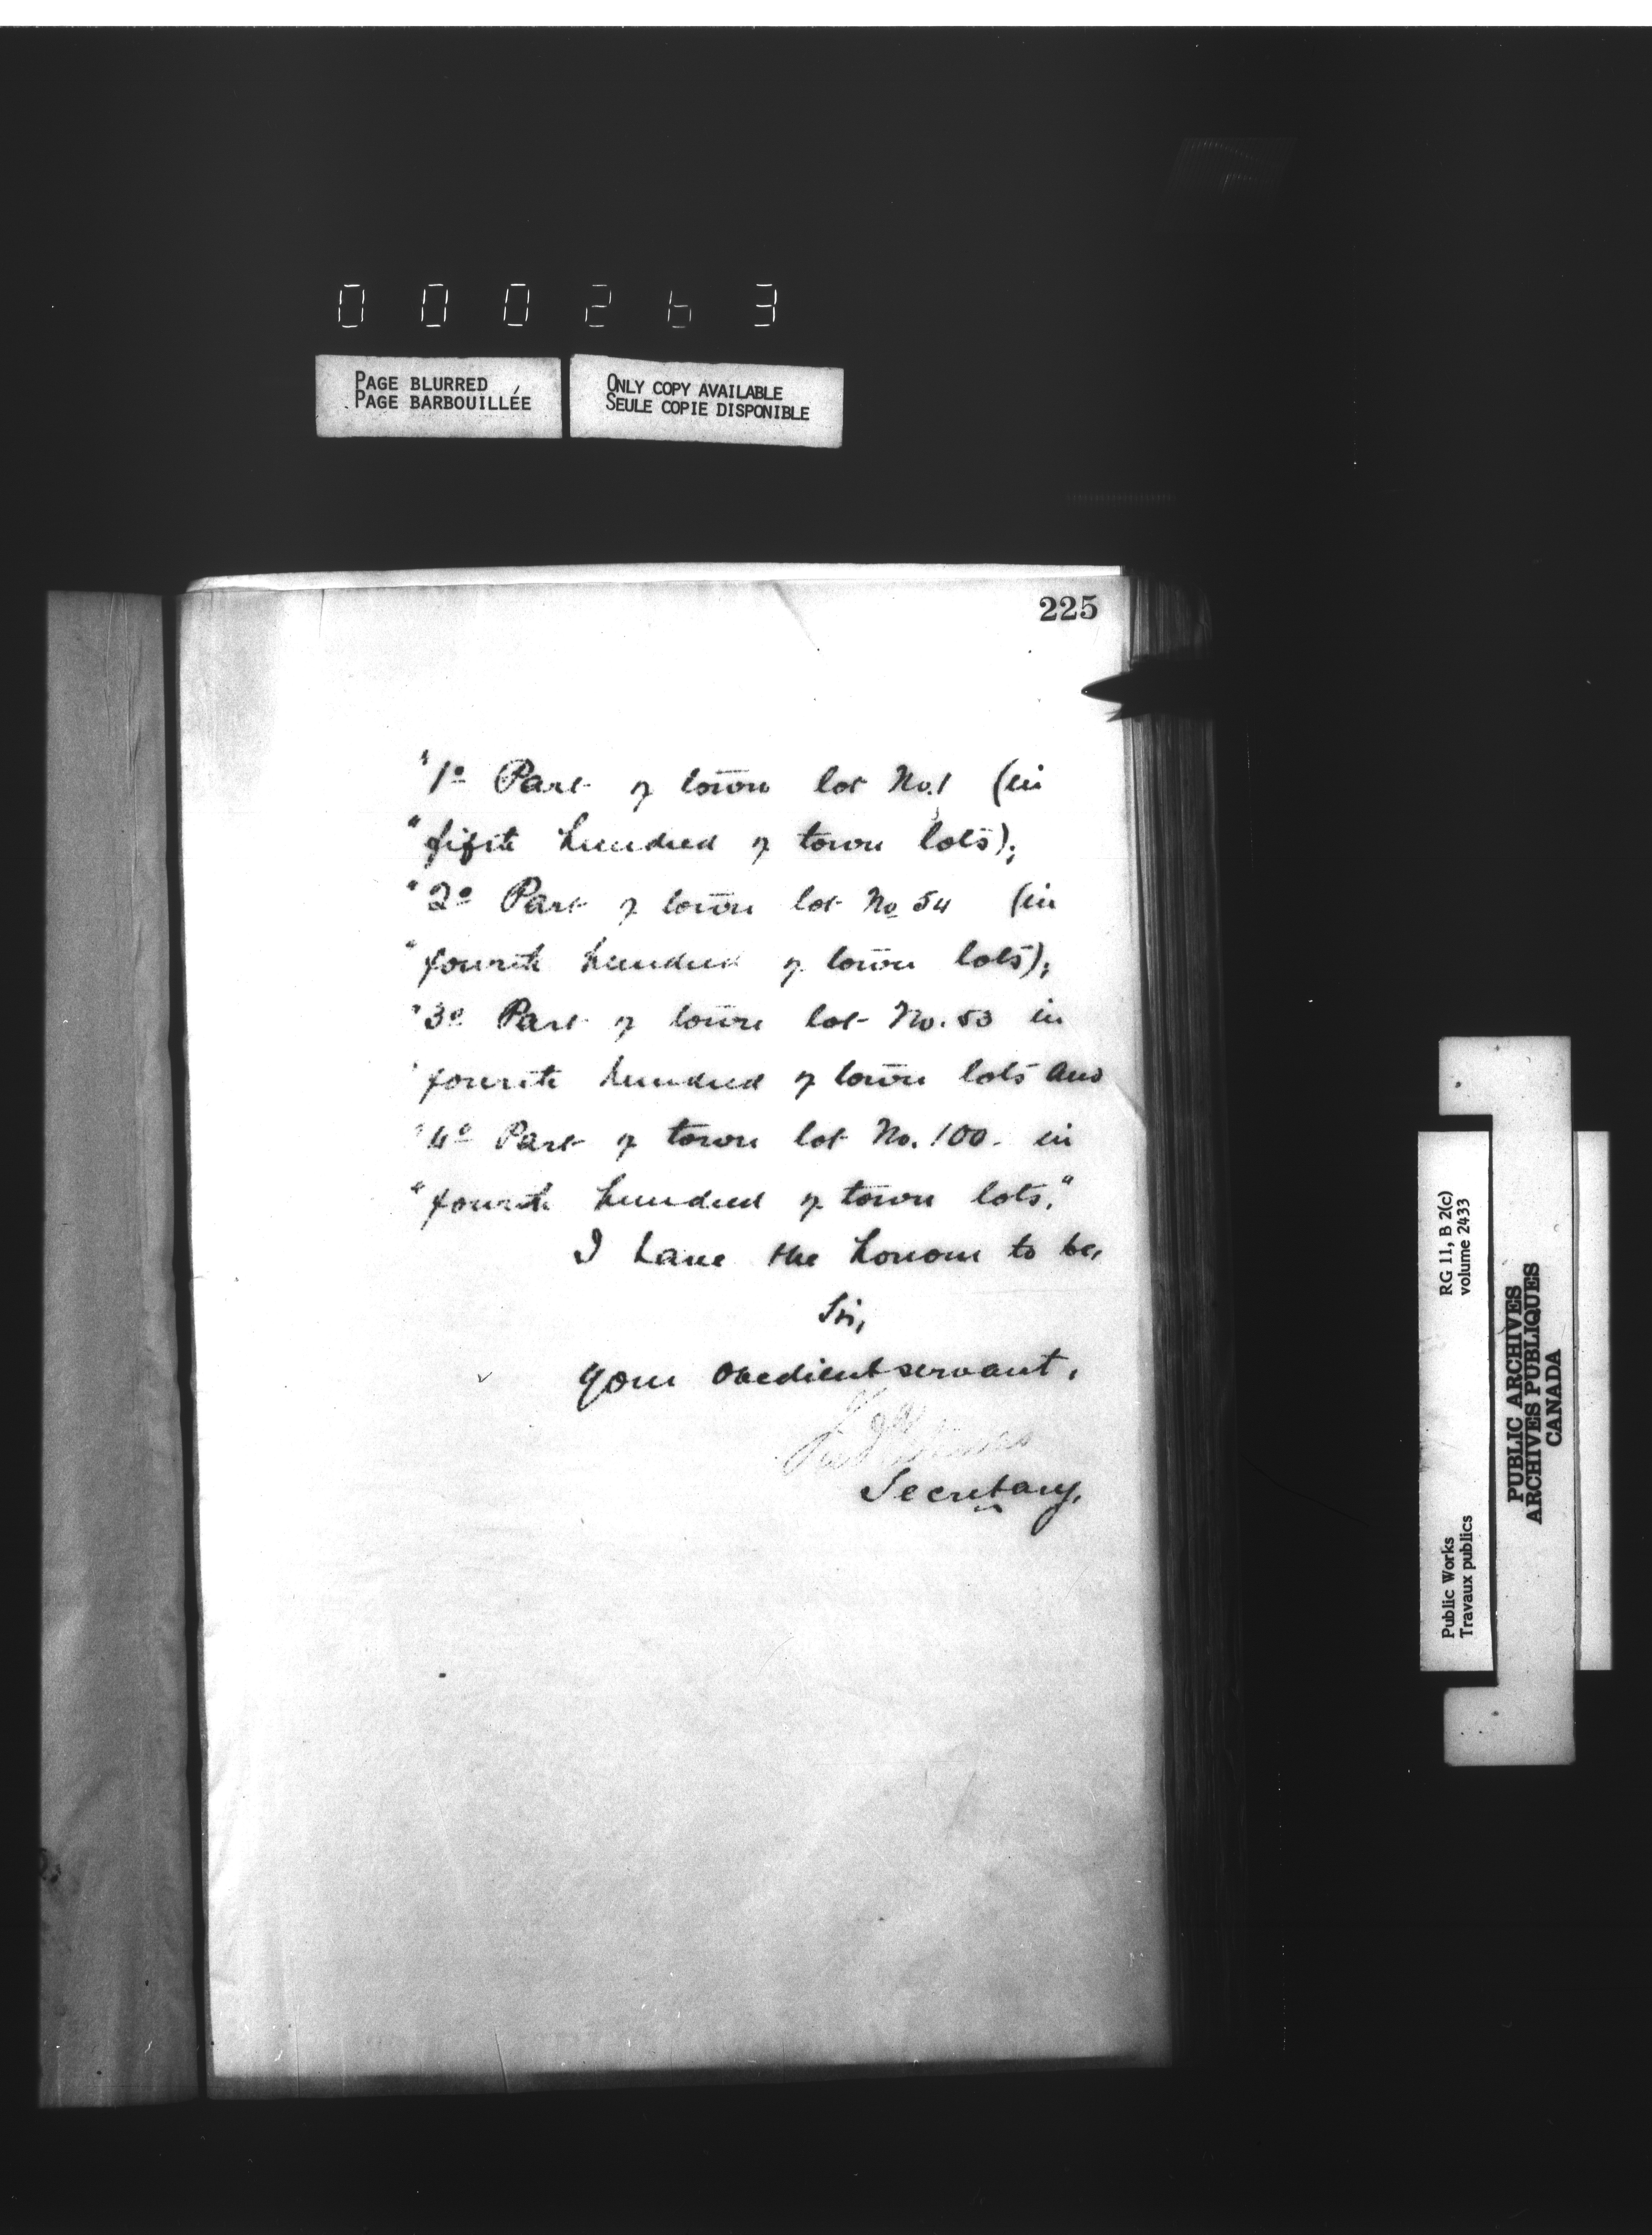 000263
PAGE BLURRED
PAGE BARBOUILLÉE
ONLY COPY AVAILABLE
SEULE COPIE DISPONIBLE
225
"1º Part of town lot No. 1 (in
"fifth hundred of town lots);
"2º Part of town lot No 54 (in
"fourth hundred of town lots);
"3º Part of town lot No. 53 in
"fourth hundred of town lots and
"4º Part of town lot No. 100 in
"fourth hundred of town lots."
I have the honour to be,
Sir,
Your obedient servant,
Secretary.
RG 11, B 2(c)
volume 2433
Public Works
Travaux publics
PUBLIC ARCHIVES
ARCHIVES PUBLIQUES
CANADA